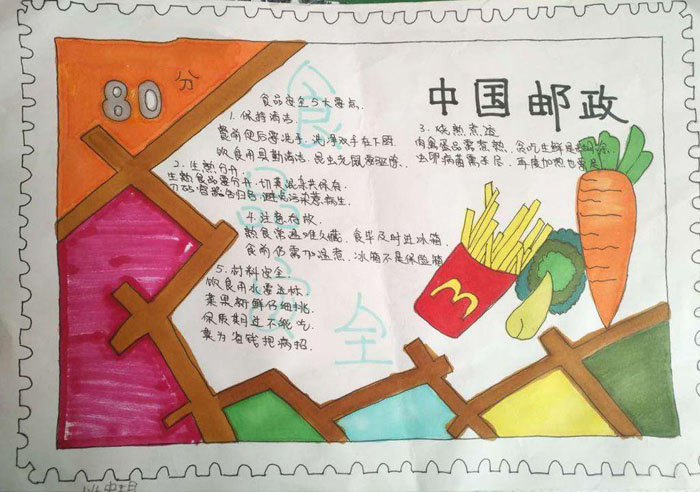 80分
中国邮政
食品安全5大要点
1. 保持清洁
餐前便后要洗手，洗净双手在下厨
饮食用具勤清洁，昆虫老鼠要驱除
2. 生熟分开
生熟食品要分开，切莫混杂共保存
刀砧容器各归各，避免污染惹病生
3. 烧熟煮透
肉禽蛋品需煮熟
虫卵病菌需杀尽，再度加热也要足
4. 注意存放
熟食常温难久藏，食毕及时进冰箱
食前仍需加温煮，冰箱不是保险箱
5. 材料安全
饮食用水要达标
菜果新鲜仔细挑
保质期过不能吃
莫为省钱把病招
食品安全